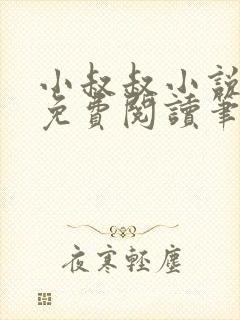 小叔叔小說
免費閱讀筆
夜寒輕塵